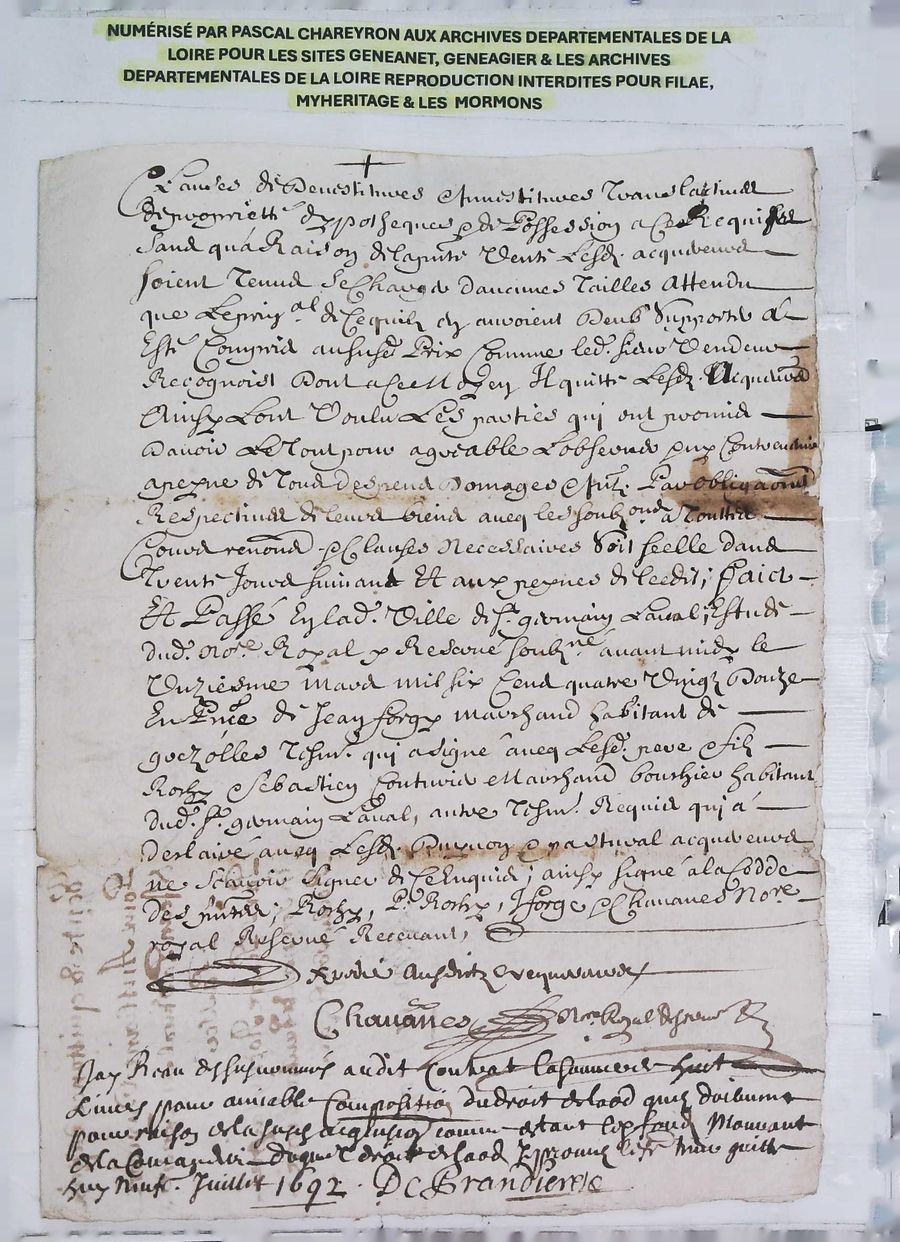 NUMÉRISÉ PAR PASCAL CHAREYRON AUX ARCHIVES DEPARTEMENTALES DE LA
LOIRE POUR LES SITES GENEANET, GENEAGIER & LES ARCHIVES
DEPARTEMENTALES DE LA LOIRE REPRODUCTION INTERDITES POUR FILAE,
MYHERITAGE & LES MORMONS
Clauses de Devestitures & Investitures Translatives
de proprietté dhypotheques & de Possession a ce Requises
sans qua Raison de la pnte Vente Lesd. acquereurs
soient Tenus se Charger daucunes Tailles Attendu
que Le prinal de Ce quilz en auroient Deub Supporter a
Esté Compris au susd. Prix Comme led. sieur Vendeur
Recognoist Dont a ce Moyen Il quitte Lesd. Acquereurs
Ainsy Lont Voulu Les parties qui ont promis
Davoir Le Tout pour agreable Lobserver
a peyne de Tous despens Domages & Intz. Par obligaons
Respectives de leurs biens avec les soubzons a Touttes
Cours renons & Clauses Necessaires Soit seelle dans
Trente Jours suivant Et aux peynes de leedit; Faict
Et Passé En lad. Ville de St. germain Laval, Estude
dud. Nore. Royal & Reservé soubzné avant midy le
Unziesme mars mil six Cens quatre Vingtz Douze
En Pnce de Jean forge marchand habitant de
grezolles Tesm. qui a signé avec Lesd. pere & filz
Rochy Sebastien Marchand boucher habitant
dud. St. germain Laval, autre Tesm. Requis qui a
desclairé avec Lesd. & pastural acquereurs
ne Scavoir Signer de Ce Enquis; ainsy signé a la Cedde
des pntes; Rochy, P. Rochy, Iforge & Chavanes Nore
royal Reservé Recevant,
Expedié Ausdictz acquereurs
Chavanes Nore Royal Reservé
Jay Receu des susnommés audit Contrat la somme de huit
Livres pour amiable Composition du droit de laod quilz doibvent
pour raison de la susd. acquisition comme estant Le fond Mouvant
de la Comanderie duquel droit de laod
huy Neuf. Juillet 1692. De Brandieretz